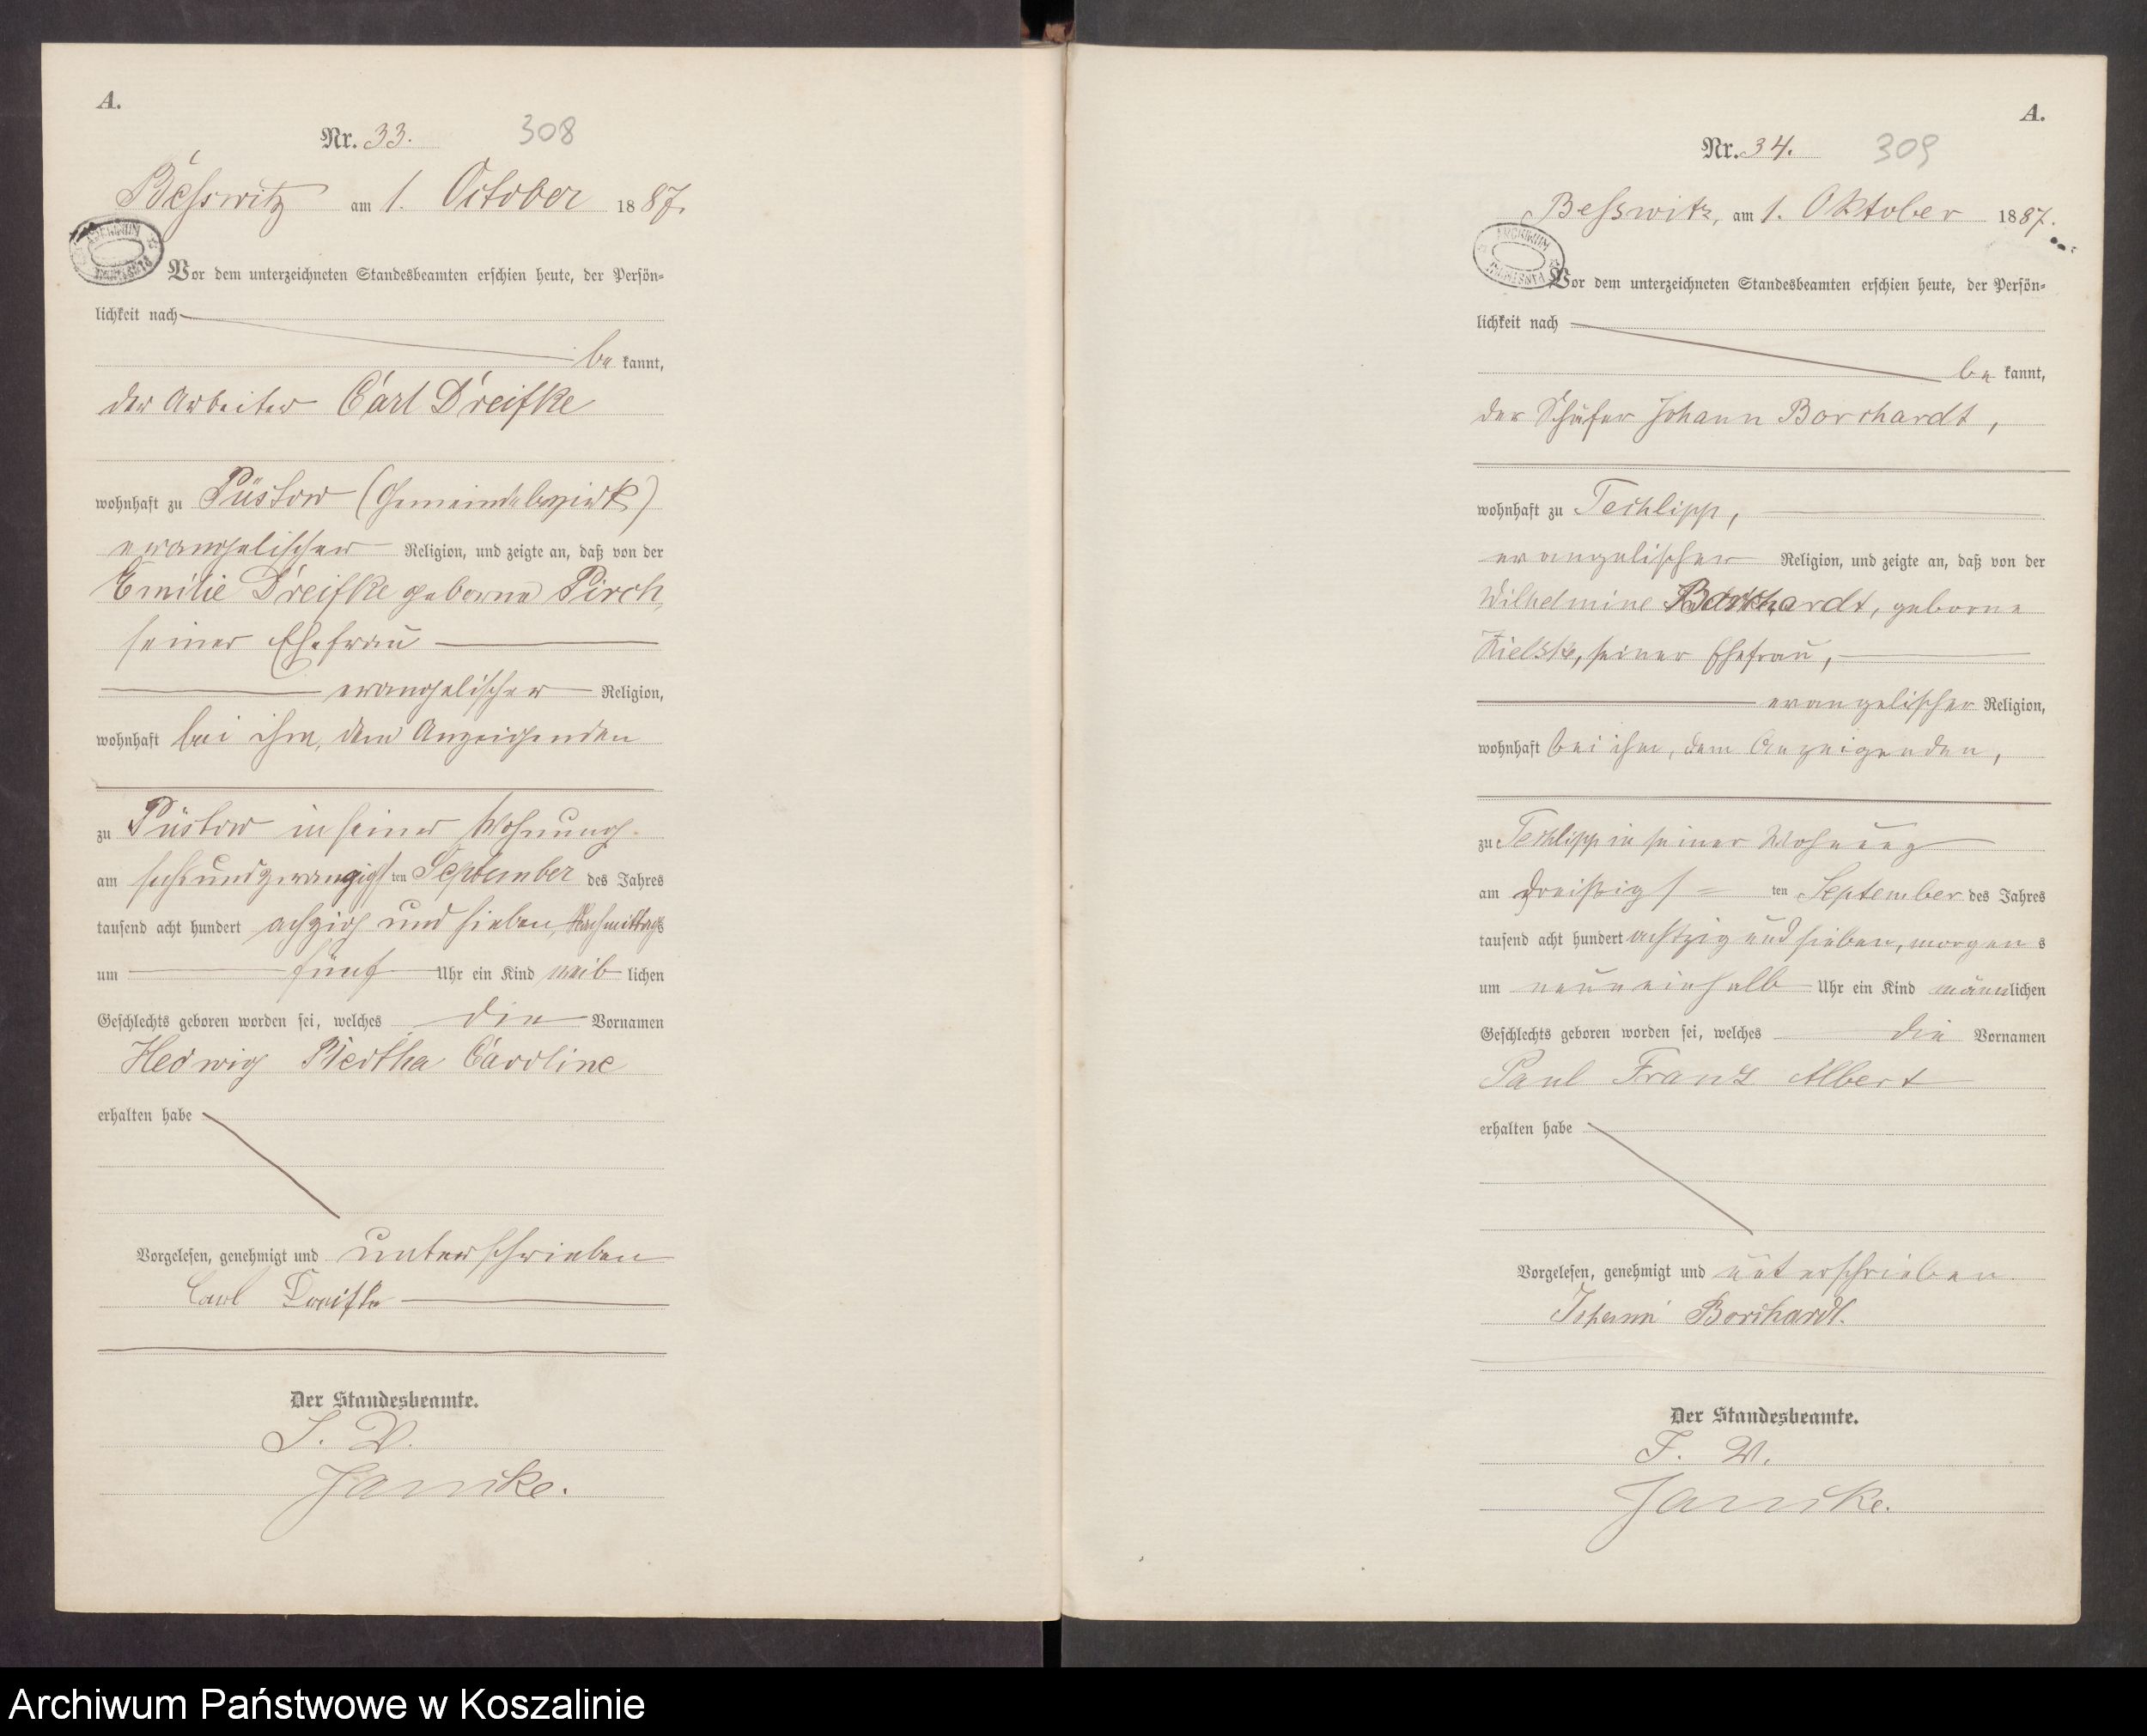 A.
Nr. 33. 308
Besswitz am 1. October 1887.
Vor dem unterzeichneten Standesbeamten erschien heute, der Persön-
lichkeit nach
be kannt,
der Arbeiter Carl Dreifke
wohnhaft zu Püstow (Gemeindebezirk)
evangelischer Religion, und zeigte an, daß von der
Emilie Dreifke geborne Pirch,
seiner Ehefrau
evangelischer Religion,
wohnhaft bei ihm, dem Anzeigenden
zu Püstow in seiner Wohnung
am sechsundzwanzigsten September des Jahres
tausend acht hundert achtzig und sieben, Nachmittags
um fünf Uhr ein Kind weiblichen
Geschlechts geboren worden sei, welches die Vornamen
Hedwig Bertha Caroline
erhalten habe
Vorgelesen, genehmigt und unterschrieben
Carl Dreifke
Der Standesbeamte.
I. V.
Janicke.
A.
Nr. 34. 309
Besswitz, am 1. Oktober 1887.
Vor dem unterzeichneten Standesbeamten erschien heute, der Persön-
lichkeit nach
be kannt,
der Schäfer Johann Borchardt,
wohnhaft zu Techlipp,
evangelischer Religion, und zeigte an, daß von der
Wilhelmine Borchardt, geborne
seiner Ehefrau,
evangelischer Religion,
wohnhaft bei ihm, dem Anzeigenden,
zu Techlipp in seiner Wohnung
am dreißigsten September des Jahres
tausend acht hundert achtzig und sieben, morgens
um neuneinhalb Uhr ein Kind männlichen
Geschlechts geboren worden sei, welches die Vornamen
Paul Franz Albert
erhalten habe
Vorgelesen, genehmigt und unterschrieben.
Johann Borchardt.
Der Standesbeamte.
I. V.
Janicke.
Archiwum Państwowe w Koszalinie